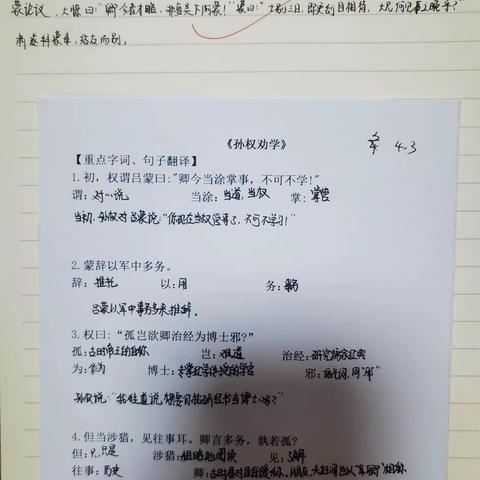 蒙论议,大惊曰:"卿今者才略,非复吴下阿蒙!"蒙曰:"士别三日,即更刮目相待,大兄何见事之晚乎?"
肃遂拜蒙母,结友而别。
《孙权劝学》 4-3
【重点字词、句子翻译】
1.初,权谓吕蒙曰:"卿今当涂掌事,不可不学!"
谓:对…说 当涂:当道,当权 掌:掌管
当初,孙权对吕蒙说:"你现在当权管事了,不可不学习!"
2.蒙辞以军中多务。
辞:推托 以:用 务:事务
吕蒙以军中事务多来推辞。
3.权曰:"孤岂欲卿治经为博士邪?"
孤:古时帝王的自称 岂:难道 治经:研究儒家经典
为:作为 博士: 邪:语气词,同"耶"
孙权说:"我难道说想要你研究经书当博士吗?"
4.但当涉猎,见往事耳。卿言多务,孰若孤?
但:只,只是 涉猎:粗略地阅读 见:了解
往事:历史 卿:古时君对臣的爱称,朋友、夫妇间也以"卿"相称